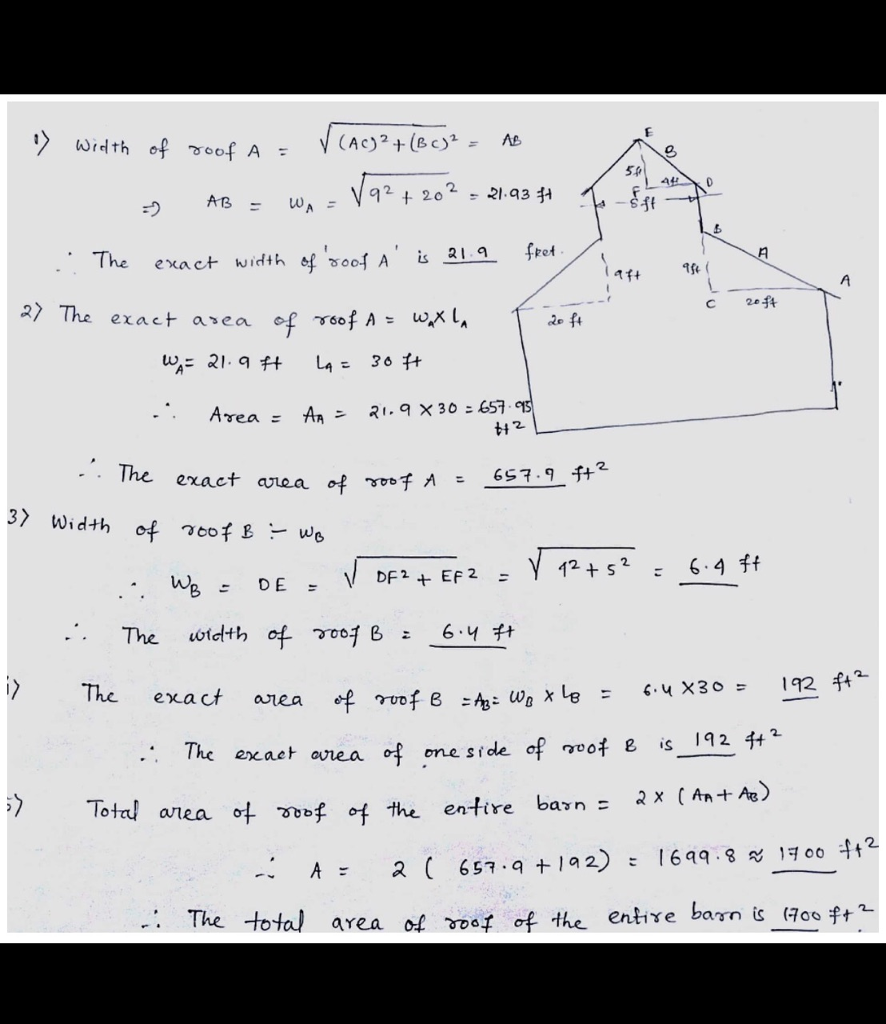 1) Width of roof A = √(AC)²+(BC)² = AB
⇒ AB = W_A = √9² + 20² = 21.93 ft
∴ The exact width of 'roof A' is 21.9 feet.
2) The exact area of roof A = W_A X L_A
W_A = 21.9 ft L_A = 30 ft
∴ Area = A_A = 21.9 X 30 = 657.95
ft²
∴ The exact area of roof A = 657.9 ft²
3) Width of roof B :- W_B
∴ W_B = DE = √ DF² + EF² = √ 4² + 5² = 6.4 ft
∴ The width of roof B = 6.4 ft
The exact area of roof B = A_B = W_B X L_B = 6.4 X 30 = 192 ft²
∴ The exact area of one side of roof B is 192 ft²
5) Total area of roof of the entire barn = 2 X (A_A + A_B)
∴ A = 2 ( 657.9 + 192) = 1699.8 ≈ 1700 ft²
∴ The total area of roof of the entire barn is 1700 ft²
E
B
5ft
4ft
D
F
8ft
B
A
9ft
9ft
A
C
20ft
20 ft